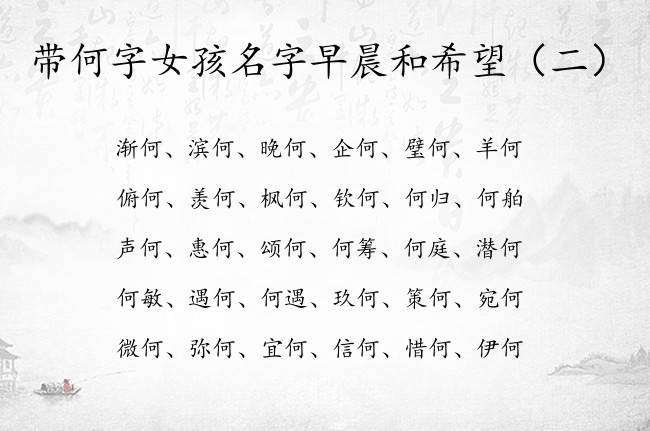 带何字女孩名字早晨和希望（二）
渐何、滨何、晚何、企何、璧何、羊何
俯何、羡何、枫何、钦何、何归、何舶
声何、惠何、颂何、何筹、何庭、潜何
何敏、遇何、何遇、玖何、策何、宛何
微何、弥何、宜何、信何、惜何、伊何